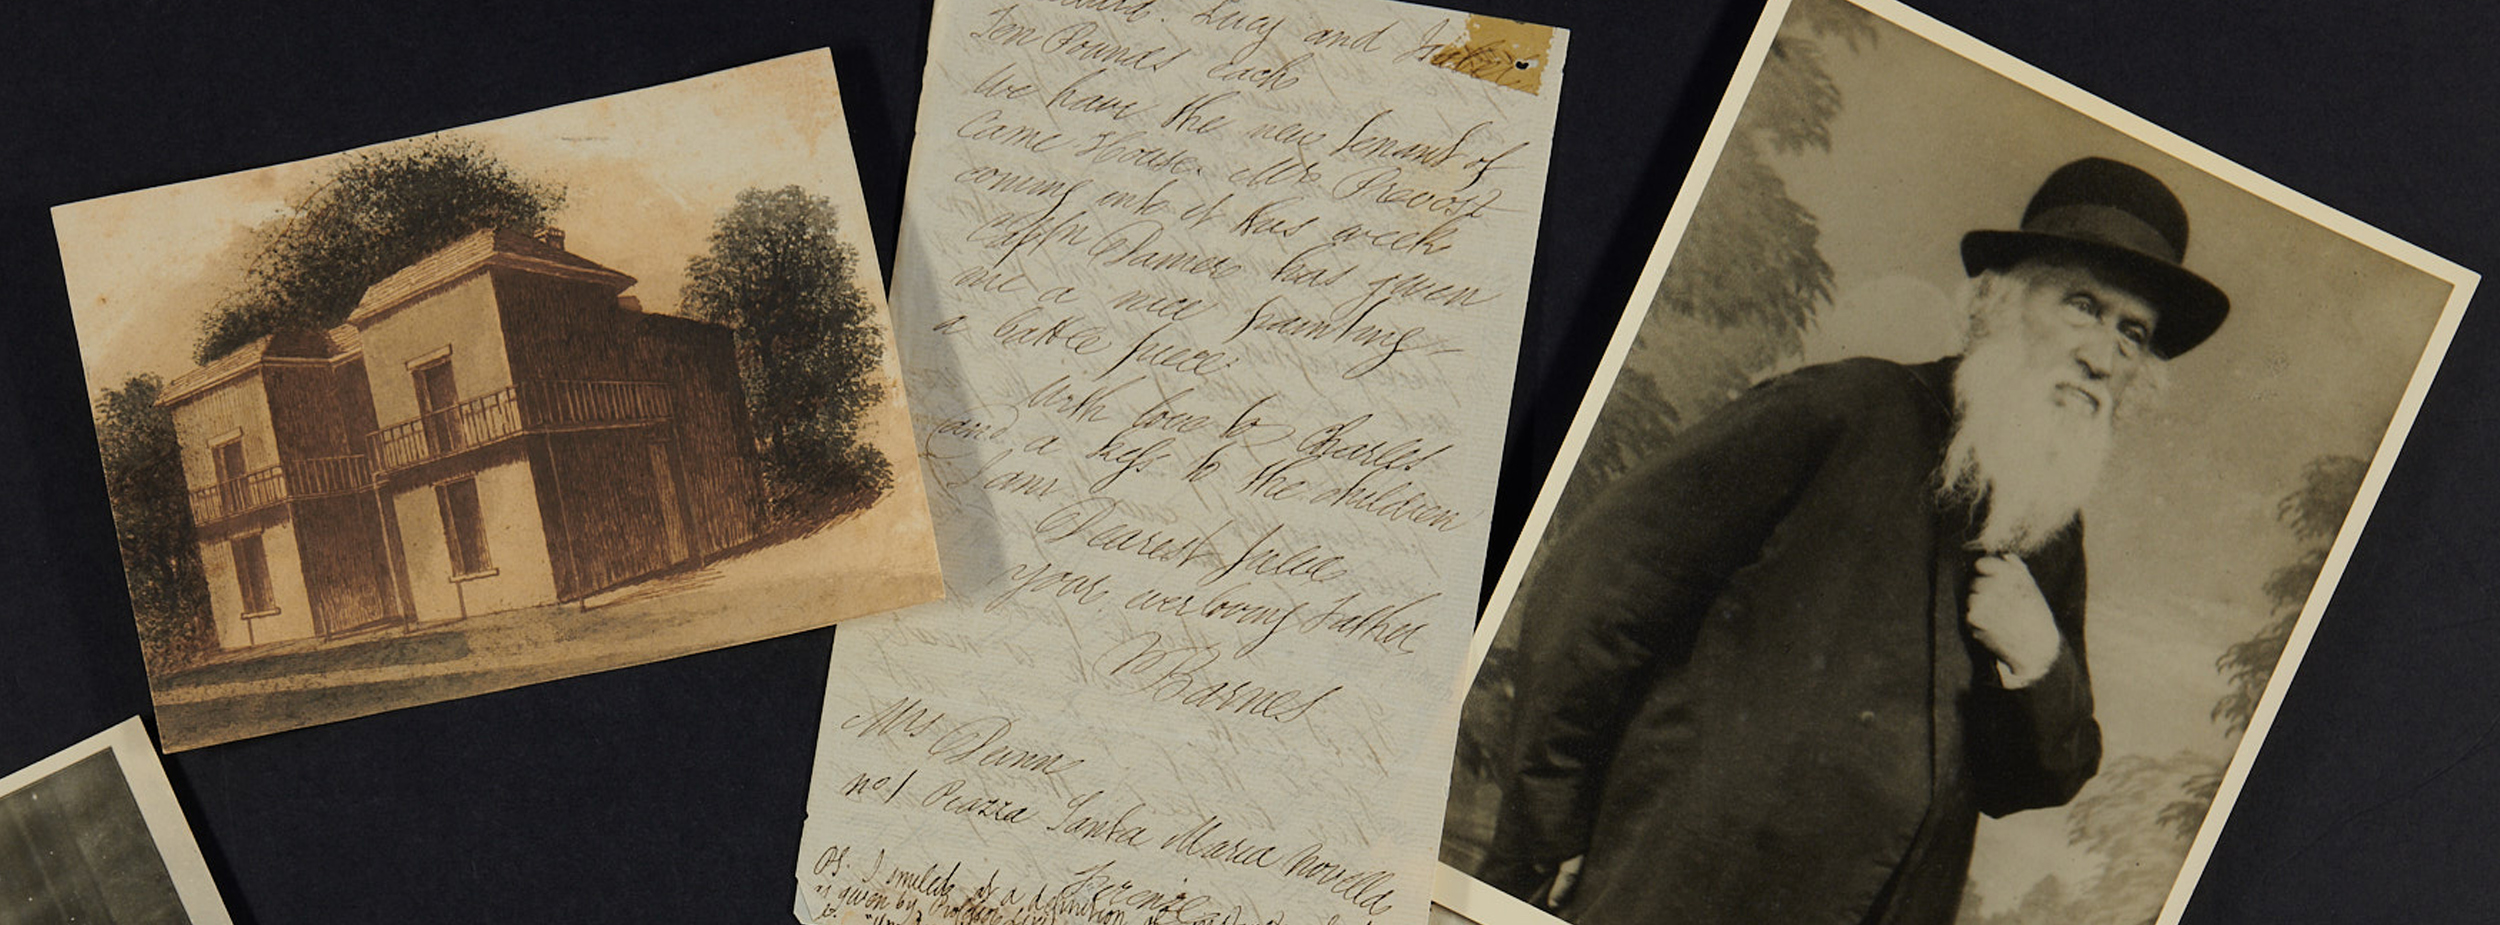 Lucy and Isabel
Ten Pounds each
We have the new tenant of
Came House. Mrs Prevost
coming into it this week
Capn Damer has given
me a nice painting -
a battle piece.
With love to Charles
and a kiss to the children
I am
Dearest Julia
your ever loving Father
W Barnes
Mrs Dunn
No 1 Piazza Santa Maria Novella
Firenze
PS. I smiled at a definition of
as given by Professor